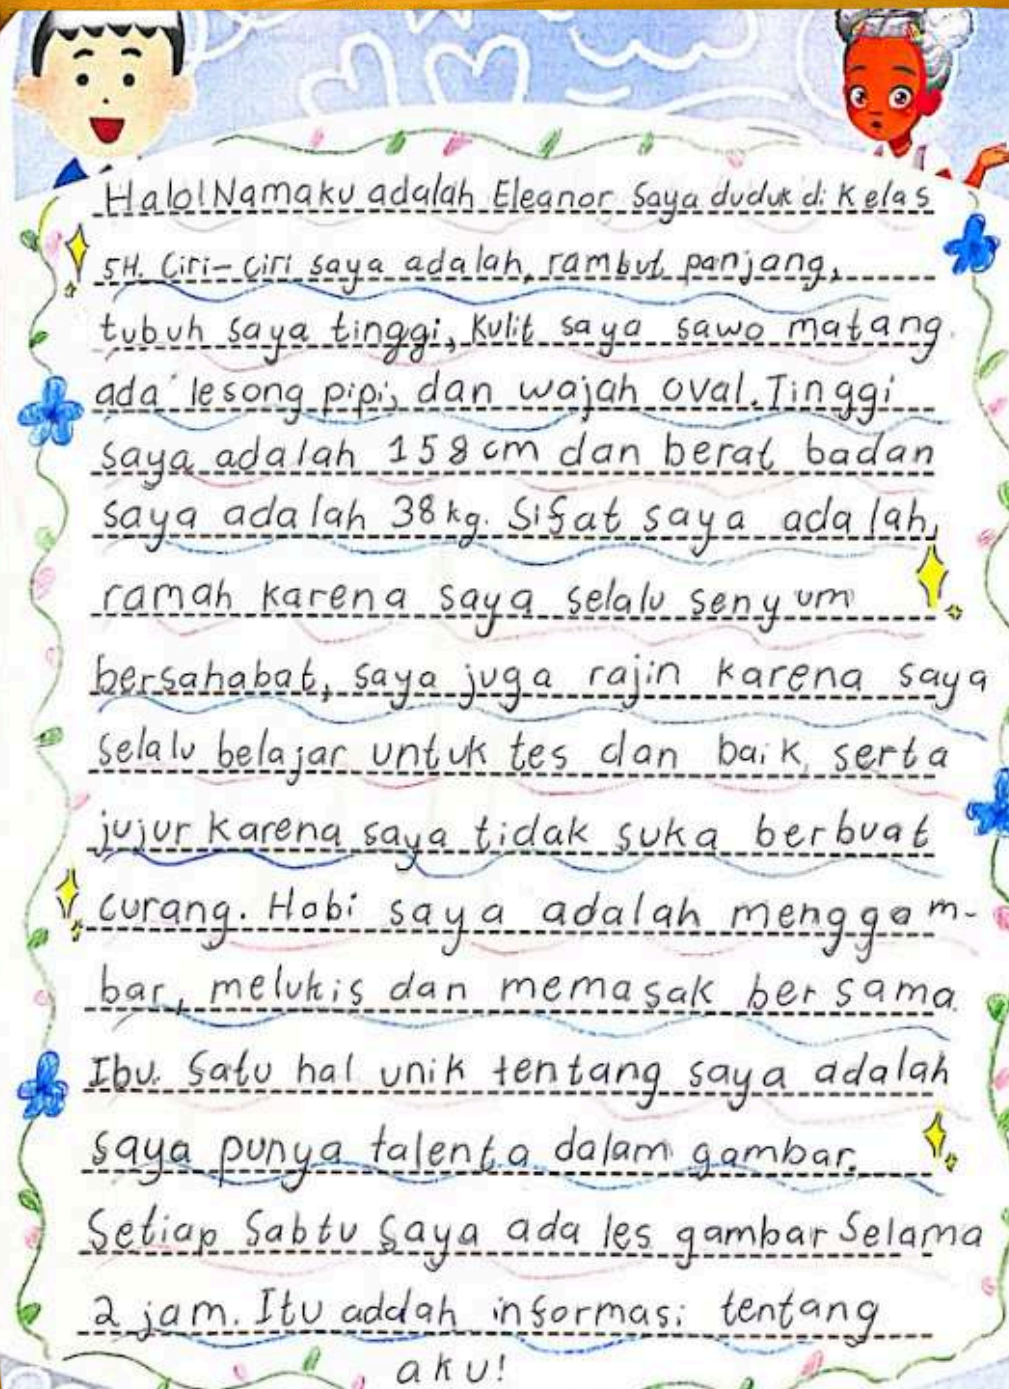 Halo! Namaku adalah Eleanor Saya duduk di Kelas
5H. Ciri-ciri saya adalah, rambut panjang,
tubuh saya tinggi, kulit saya sawo matang.
ada lesong pipi, dan wajah oval. Tinggi
saya adalah 158 cm dan berat badan
saya adalah 38 kg. Sifat saya adalah,
ramah karena saya selalu senyum
bersahabat, saya juga rajin karena saya
selalu belajar untuk tes dan baik, serta
jujur karena saya tidak suka berbuat
curang. Hobi saya adalah menggam-
bar, melukis dan memasak bersama
Ibu. Satu hal unik tentang saya adalah
saya punya talenta dalam gambar.
Setiap Sabtu saya ada les gambar Selama
2 jam. Itu adalah informasi tentang
aku!